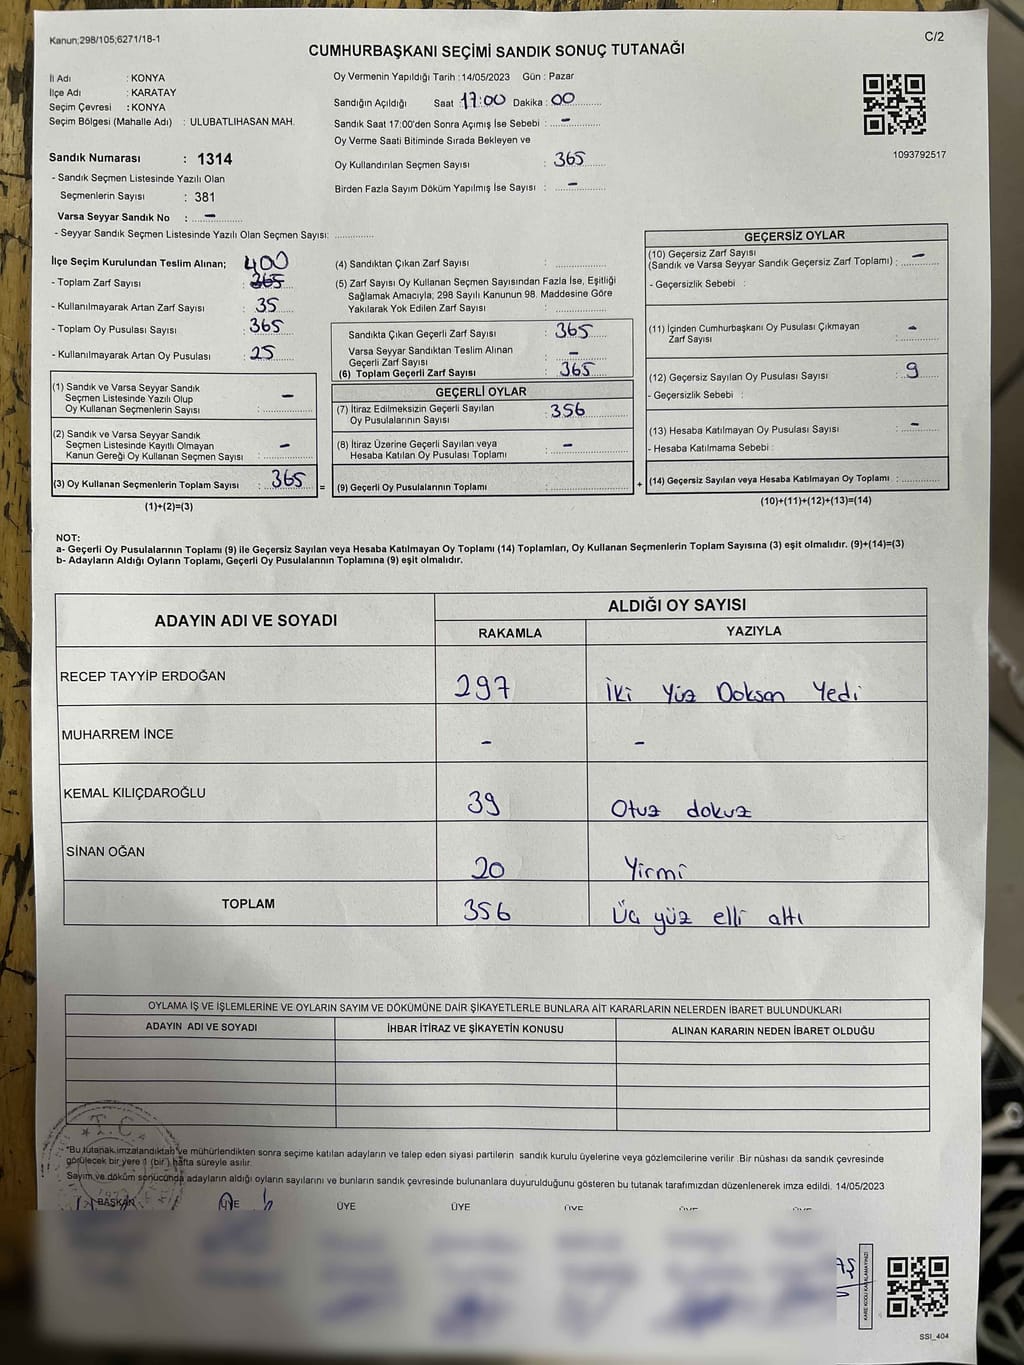 Kanun;298/105;6271/18-1
C/2
CUMHURBAŞKANI SEÇİMİ SANDIK SONUÇ TUTANAĞI
İl Adı : KONYA
İlçe Adı : KARATAY
Seçim Çevresi : KONYA
Seçim Bölgesi (Mahalle Adı) : ULUBATLIHASAN MAH.
Sandık Numarası : 1314
- Sandık Seçmen Listesinde Yazılı Olan
Seçmenlerin Sayısı : 381
Varsa Seyyar Sandık No : –
- Seyyar Sandık Seçmen Listesinde Yazılı Olan Seçmen Sayısı: ..............
Oy Vermenin Yapıldığı Tarih : 14/05/2023 Gün : Pazar
Sandığın Açıldığı Saat : 17:00 Dakika : 00
Sandık Saat 17:00'den Sonra Açımış İse Sebebi : –
Oy Verme Saati Bitiminde Sırada Bekleyen ve
Oy Kullandırılan Seçmen Sayısı : 365
Birden Fazla Sayım Döküm Yapılmış İse Sayısı : –
1093792517
İlçe Seçim Kurulundan Teslim Alınan; 400
- Toplam Zarf Sayısı : 365
- Kullanılmayarak Artan Zarf Sayısı : 35
- Toplam Oy Pusulası Sayısı : 365
- Kullanılmayarak Artan Oy Pusulası : 25
(1) Sandık ve Varsa Seyyar Sandık
Seçmen Listesinde Yazılı Olup
Oy Kullanan Seçmenlerin Sayısı : –
(2) Sandık ve Varsa Seyyar Sandık
Seçmen Listesinde Kayıtlı Olmayan
Kanun Gereği Oy Kullanan Seçmen Sayısı : –
(3) Oy Kullanan Seçmenlerin Toplam Sayısı : 365 =
(1)+(2)=(3)
(4) Sandıktan Çıkan Zarf Sayısı : ..............
(5) Zarf Sayısı Oy Kullanan Seçmen Sayısından Fazla İse, Eşitliği
Sağlamak Amacıyla; 298 Sayılı Kanunun 98. Maddesine Göre
Yakılarak Yok Edilen Zarf Sayısı : ..............
Sandıkta Çıkan Geçerli Zarf Sayısı : 365
Varsa Seyyar Sandıktan Teslim Alınan
Geçerli Zarf Sayısı : –
(6) Toplam Geçerli Zarf Sayısı : 365
GEÇERLİ OYLAR
(7) İtiraz Edilmeksizin Geçerli Sayılan
Oy Pusulalarının Sayısı : 356
(8) İtiraz Üzerine Geçerli Sayılan veya
Hesaba Katılan Oy Pusulası Toplamı : –
(9) Geçerli Oy Pusulalarının Toplamı : .............. +
GEÇERSİZ OYLAR
(10) Geçersiz Zarf Sayısı
(Sandık ve Varsa Seyyar Sandık Geçersiz Zarf Toplamı) : –
- Geçersizlik Sebebi :
(11) İçinden Cumhurbaşkanı Oy Pusulası Çıkmayan
Zarf Sayısı : –
(12) Geçersiz Sayılan Oy Pusulası Sayısı : 9
- Geçersizlik Sebebi :
(13) Hesaba Katılmayan Oy Pusulası Sayısı : –
- Hesaba Katılmama Sebebi :
(14) Geçersiz Sayılan veya Hesaba Katılmayan Oy Toplamı : ............
(10)+(11)+(12)+(13)=(14)
NOT:
a- Geçerli Oy Pusulalarının Toplamı (9) ile Geçersiz Sayılan veya Hesaba Katılmayan Oy Toplamı (14) Toplamları, Oy Kullanan Seçmenlerin Toplam Sayısına (3) eşit olmalıdır. (9)+(14)=(3)
b- Adayların Aldığı Oyların Toplamı, Geçerli Oy Pusulalarının Toplamına (9) eşit olmalıdır.
ADAYIN ADI VE SOYADI
ALDIĞI OY SAYISI
RAKAMLA YAZIYLA
RECEP TAYYİP ERDOĞAN 297 İki Yüz Doksan Yedi
MUHARREM İNCE – –
KEMAL KILIÇDAROĞLU 39 Otuz dokuz
SİNAN OĞAN 20 Yirmi
TOPLAM 356 Üç yüz elli altı
OYLAMA İŞ VE İŞLEMLERİNE VE OYLARIN SAYIM VE DÖKÜMÜNE DAİR ŞİKAYETLERLE BUNLARA AİT KARARLARIN NELERDEN İBARET BULUNDUKLARI
ADAYIN ADI VE SOYADI İHBAR İTİRAZ VE ŞİKAYETİN KONUSU ALINAN KARARIN NEDEN İBARET OLDUĞU
T.C
*Bu tutanak,imzalandıktan ve mühürlendikten sonra seçime katılan adayların ve talep eden siyasi partilerin sandık kurulu üyelerine veya gözlemcilerine verilir .Bir nüshası da sandık çevresinde
görülecek bir yere 1 (bir) hafta süreyle asılır.
Sayım ve döküm sonucunda adayların aldığı oyların sayılarını ve bunların sandık çevresinde bulunanlara duyurulduğunu gösteren bu tutanak tarafımızdan düzenlenerek imza edildi. 14/05/2023
BAŞKAN ÜYE ÜYE ÜYE ÜYE ÜYE ÜYE
SSI_404